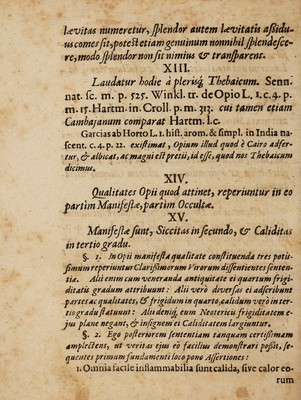 lævitas numeretur, splendor autem lævitatis assidu-
us comes sit, potest etiam genuinum nonnihil splendesce-
re, modo splendor non sit nimius & transparent.
XIII.
Laudatur hodie à plerisq; Thebaicum. Senn.
nat. sc. m. p. 525. Winkl. tr. de Opio L. 1. c. 4. p.
m. 15. Hartm. in Croll. p. m. 313. cui tamen etiam
Cambajanum comparat Hartm. l. c.
Garcias ab Horto L. 1. hist. arom. & simpl. in India na-
scent. c. 4. p. 22. existimat, Opium illud quod è Cairo adfer-
tur, & albicat, ac magni est pretii, id esse, quod nos Thebaicum
dicimus.
XIV.
Qualitates Opii quod attinet, reperiuntur in eo
partim Manifestæ, partim Occultæ.
XV.
Manifestæ sunt, Siccitas in secundo, & Caliditas
in tertio gradu.
§. 1. In Opii manifesta qualitate constituenda tres potis-
simum reperiuntur Clarissimorum Virorum dissentientes senten-
tiæ. Alii enim cum veneranda antiquitate ei quartum frigi-
ditatis gradum attribuunt: Alii verò diversas ei adscribunt
partes ac qualitates, & frigidum in quarto, calidum verò in ter-
tio gradu statuunt: Alii deniq; eum Neotericis frigiditatem e-
jus plane negant, & insignem ei Caliditatem largiuntur.
§. 2. Ego posteriorem sententiam tanquam certissimam
amplectens, ut veritas ejus eò facilius demonstrari possit, se-
quentes primum fundamenti loco pono Assertiones:
1. Omnia facile inflammabilia sunt calida, sive calor eo-
rum